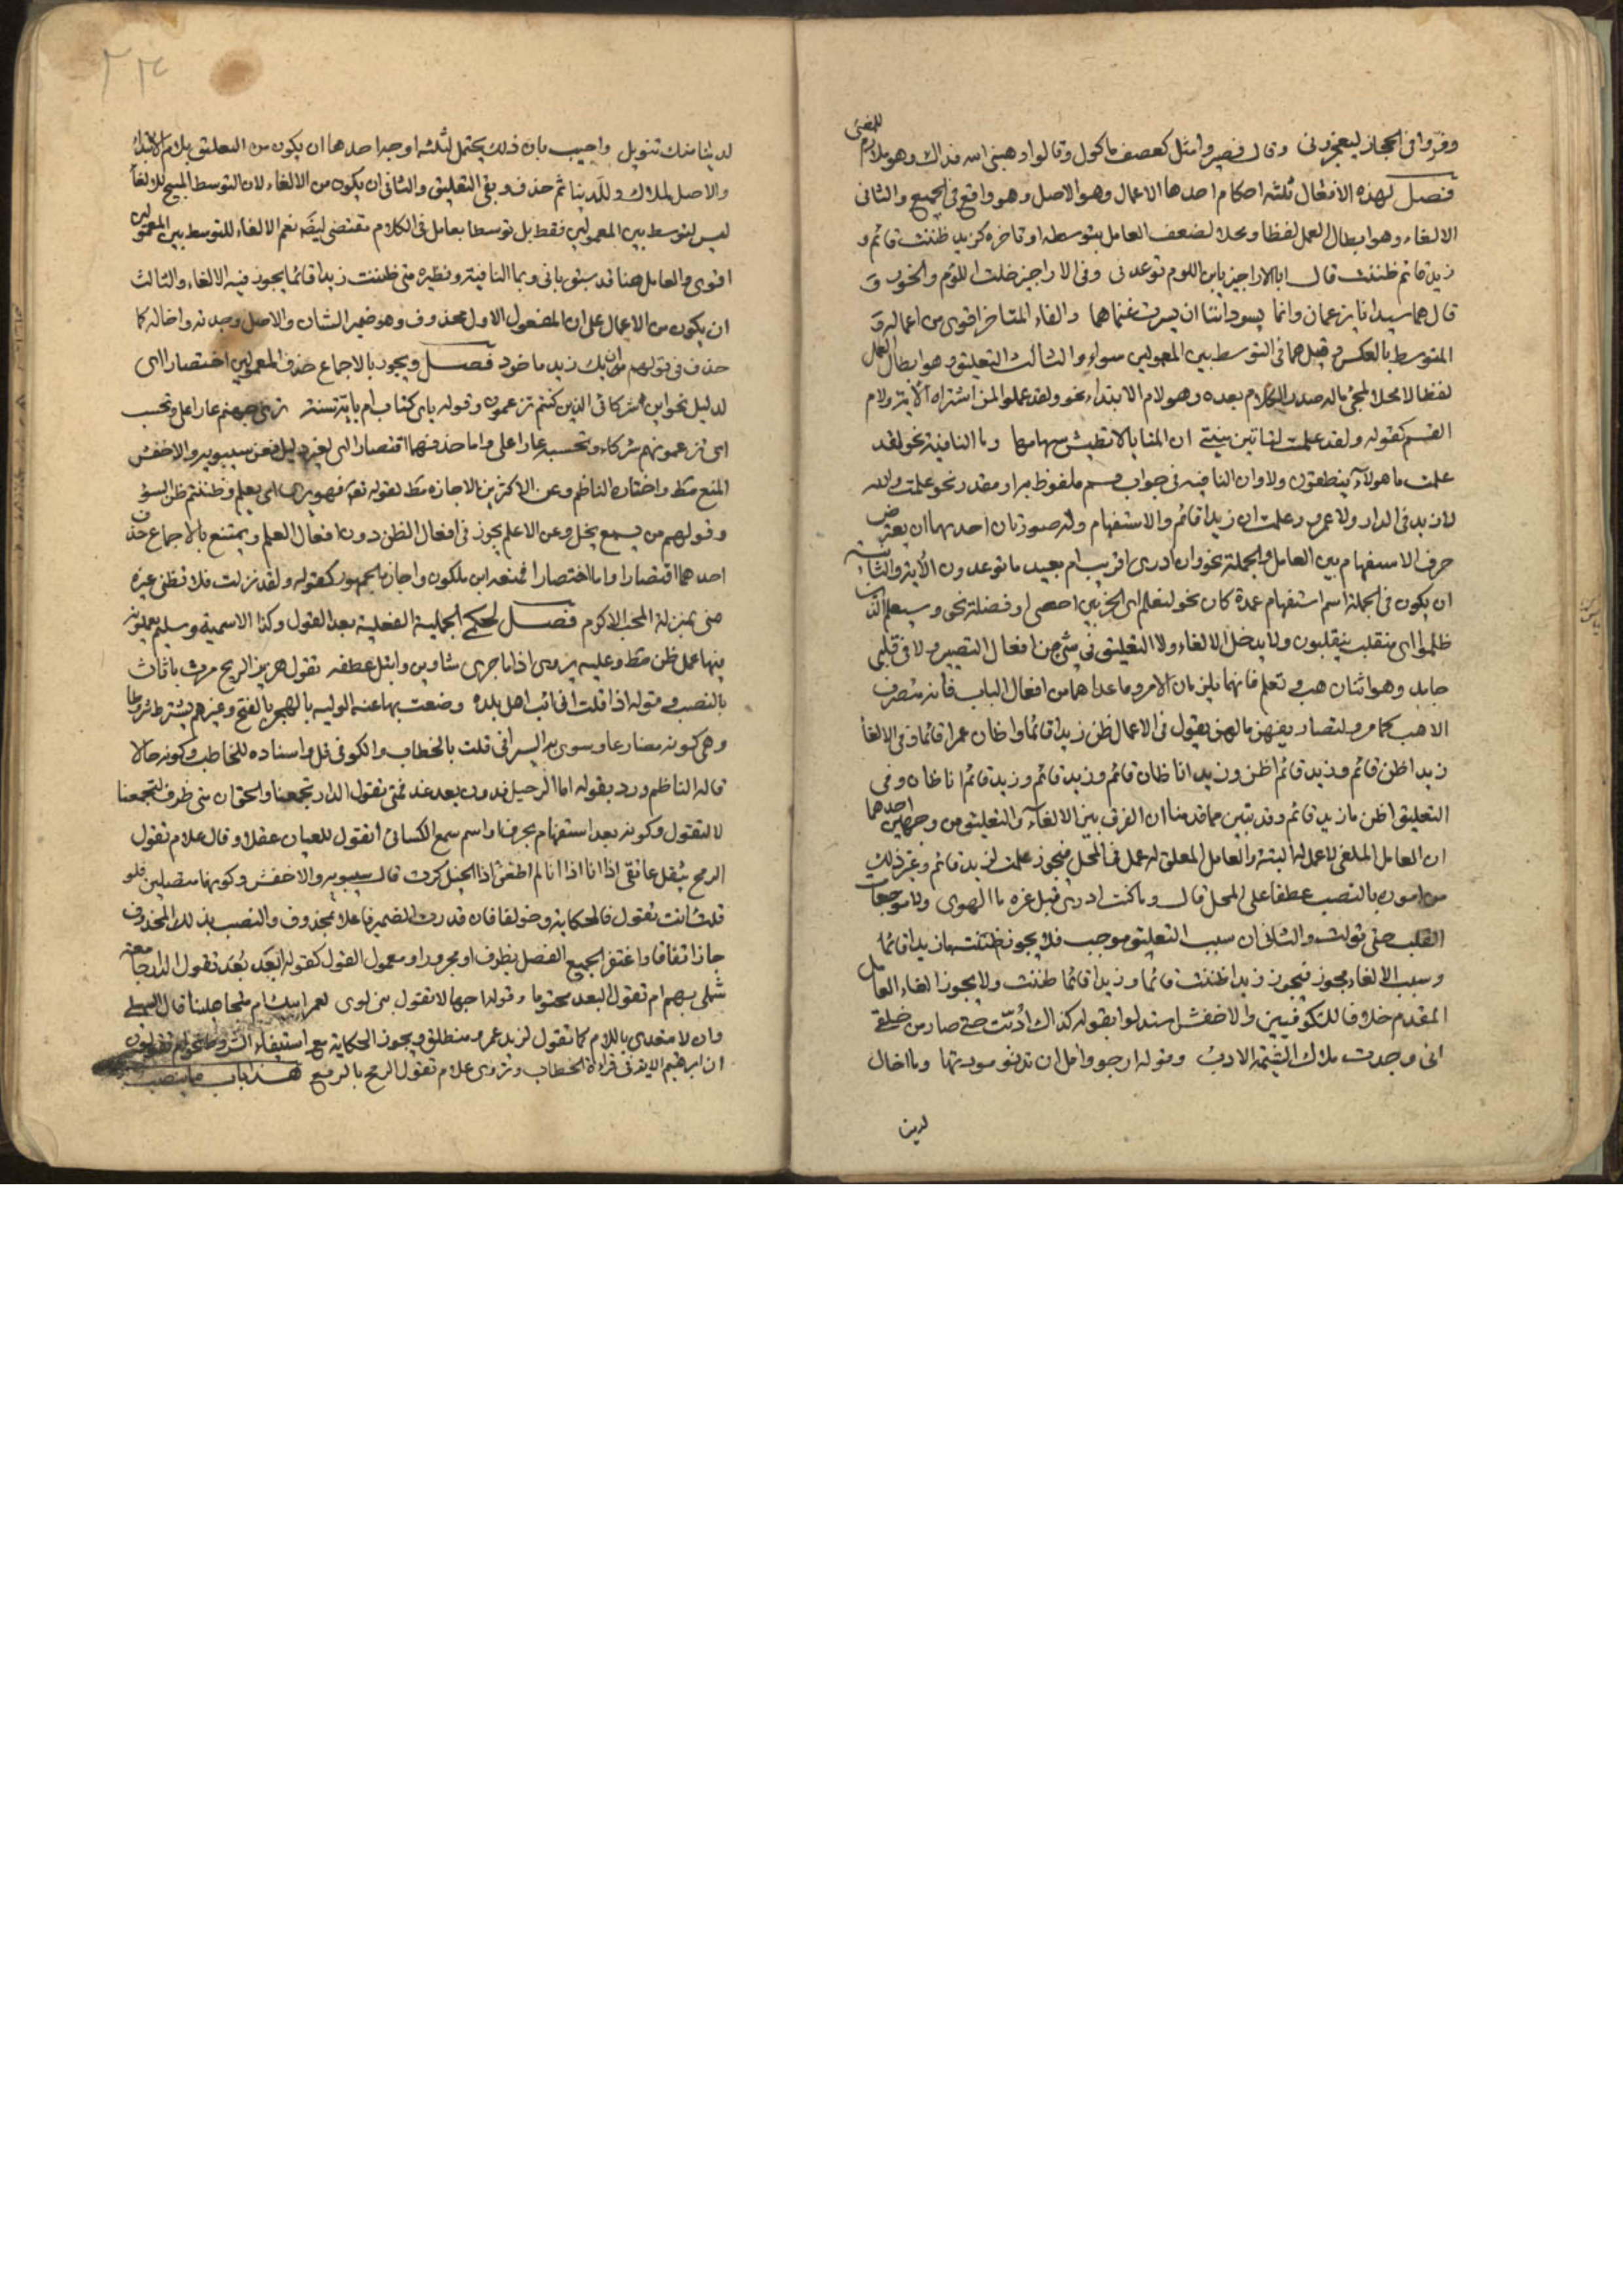 وفروا في الحجاز ليعجزوني وقال فصيروا مثل كعصف ماكول وقالوا وهبني الله فداك وهو ملازم للمضي
فصل لهذه الافعال ثلثة احكام احدها الاعمال وهو الاصل وهو واقع في الجميع والثاني
الالغاء وهو ابطال العمل لفظا ومحلا لضعف العامل بتوسطه او تاخره كزيد ظننت قائم و
زيد قائم ظننت قال ابالاراجيز يابن اللوم توعدني وفي الاراجيز خلت اللؤم والخور و
قال هما سيدانا يزعمان وانما يسوداننا ان يسرت غنماهما والغاء المتاخر اقوى من اعماله و
المتوسط بالعكس وقيل هما في التوسط بين المعمولين سواء والثالث التعليق وهو ابطال العمل
لفظا لا محلا لمجئ ماله صدر الكلام بعده وهو لام الابتداء نحو ولقد علموا لمن اشتراه الاية ولام
القسم كقوله ولقد علمت لتاتين منيتي ان المنايا لا تطيش سهامها وما النافية نحو لقد
علمت ما هولآء ينطقون ولا وان النافية في جواب قسم ملفوظ به او مقدر نحو علمت والله
لا زيد في الدار ولا عمرو وعلمت ان زيدا قائم والاستفهام وله صورتان احديهما ان يعترض
حرف الاستفهام بين العامل والجملة نحو وان ادري اقريب ام بعيد ما توعدون الاية والثانية
ان يكون في الجملة اسم استفهام عمدة كان نحو لنعلم اي الحزبين احصى او فضلة نحو وسيعلم الذين
ظلموا اي منقلب ينقلبون ولا يدخل الالغاء ولا التعليق في شئ من افعال التصيير ولا في قلبي
جامد وهو اثنان هب وتعلم فانهما يلزمان الامر وما عداهما من افعال الباب فانه متصرف
الا هب كما مر ولتصاريفهن ما لهن يقول في الاعمال ظن زيدا قائما واظان عمرا قائما وفي الالغآ
زيد اظن قائم وزيد قائم اظن وزيد انا ظان قائم وزيد قائم وزيد قائم انا ظان وفي
التعليق اظن ما زيد قائم وقد تبين مما قدمنا ان الفرق بين الالغآء والتعليق من وجهين احدهما
ان العامل الملغى لا عمل له البتة والعامل المعلق له عمل في المحل فيجوز علمت لزيد قائم وغير ذلك
من امورى بالنصب عطفا على المحل قال وما كنت ادري قبل عزة ما الهوى ولا موجعات
القلب حتى تولت والثاني ان سبب التعليق موجب فلا يجوز ظننت ما زيدا قائما
وسبب الالغاء مجوز فيجوز زيدا ظننت قائما وزيدا قائما ظننت ولا يجوز الغاء العامل
المقدم خلافا للكوفيين والاخفش استدلوا بقوله كذاك ادبت حتى صار من خلقي
اني وجدت ملاك الشيمة الادب وقوله ارجو وامل ان تدنو مودتها وما اخال
لدينا
لدينا منك تنويل واجيب بان ذلك يحتمل لثلثة اوجه احدها ان يكون من التعليق بلام الابتداء
والاصل لملاك وللدينا ثم حذف وبقي التعليق والثاني ان يكون من الالغاء لان التوسط المبيح للالغآ
ليس لتوسط بين المعمولين فقط بل توسط العامل في الكلام مقتض ايضا نعم الالغاء للتوسط بين المعمولين
اقوى والعامل هنا قد سبق باني وبما النافية ونظيره متى ظننت زيدا قائما يجوز فيه الالغاء والثالث
ان يكون من الاعمال على ان المفعول الاول محذوف وهو ضمير الشان والاصل وجدته واخاله كما
حذف في قولهم ان بك زيد ماخوذ فصل ويجوز بالاجماع حذف المعمولين اختصارا اى
لدليل نحو اين شركائي الذين كنتم تزعمون وقوله باي كتاب ام باية سنة ترى حبهم عارا على وتحسب
اى تزعمونهم شركاء وتحسبه عارا علي واما حذفهما اقتصارا اى لغير دليل فعن سيبويه والاخفش
المنع مط واختاره الناظم وعن الاكثرين الاجازة مط لقوله تعم فهو يرى اي يعلم وظننتم ظن السوء
وقولهم من يسمع يخل وعن الاعلم يجوز في افعال الظن دون افعال العلم ويمتنع بالاجماع حذف
احدهما اقتصارا واما اختصارا فمنعه ابن ملكون واجازه الجمهور كقوله ولقد نزلت فلا تظني غيره
مني بمنزلة المحب الاكرم فصل تحكى الجملية الفعلية بعد القول وكذا الاسمية وسليم يعملونه
فيها عمل ظن مط وعليه يروى اذا ما جرى شاوين وابتل عطفه تقول هزيز الريح مرت باثاث
بالنصب وقوله اذا قلت اني ائب اهل بلدة وضعت بها عنه الولية بالهجر بالفتح وغيرهم يشترط شروطا
وهي كونه مضارعا وسوى به السيرافي قلت بالخطاب والكوفي قل واسناده للمخاطب وكونه حالا
قاله الناظم ورد بقوله اما الرحيل فدون بعد غد فمتى تقول الدار تجمعنا والحق ان متى ظرف لتجمعنا
لا لتقول وكونه بعد استفهام بحرف او اسم سمع الكسائي اتقول للعميان عقلا وقال علام تقول
الرمح يثقل عاتقي اذا انا اذا انا لم اطعن اذا الخيل كرت قال سيبويه والاخفش وكونهما متصلين فلو
قلت انت تقول فالحكاية وخولفا فان قدرت الضمير فاعلا بمحذوف والنصب بذلك المحذوف
جاز اتفاقا واغتفر الجميع الفصل بظرف او مجرور او معمول القول كقوله ابعد بعد تقول الدار جامعة
شملي بهم ام تقول البعد محتوما وقوله اجهالا تقول بني لوى لعمر ابيك ام متجاهلينا قال السهيلي
وان لا متعدي باللام كما تقول لزيد عمرو منطلق ويجوز الحكاية مع استيفاء الشروط نحو ام تقولون
ان ابرهيم الاية في قراءة الخطاب وتروى علام تقول الرمح بالرفع هذا باب ما ينصب